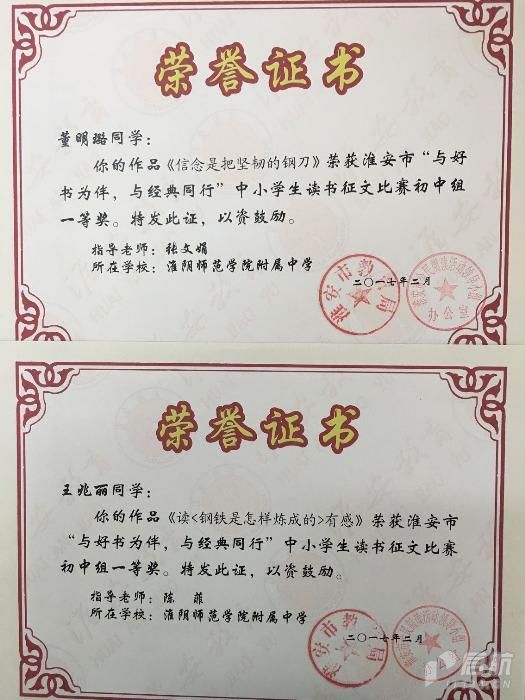 荣誉证书
董明璐同学：
你的作品《信念是把坚韧的钢刀》荣获淮安市“与好
书为伴，与经典同行”中小学生读书征文比赛初中组
一等奖。特发此证，以资鼓励。
指导老师：张文娟
所在学校：淮阴师范学院附属中学
淮安市教 局
办公室
二〇一七年二月
荣誉证书
王兆丽同学：
你的作品《读<钢铁是怎样炼成的>有感》荣获淮安市
“与好书为伴，与经典同行”中小学生读书征文比赛
初中组一等奖。特发此证，以资鼓励。
指导老师：陈 菲
所在学校：淮阴师范学院附属中学
淮安市教 局
二〇一七年二月